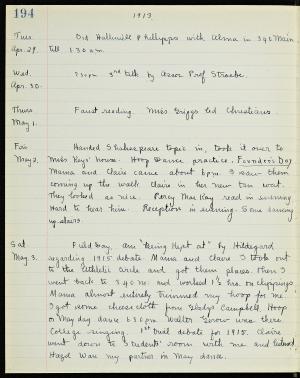 194
1913
Tues. Did Halliwell Phillipps with Alma in 392 Main
Apr. 29. till 1:30 a.m.
Wed. 7:30 p.m. 3rd talk by Assoc. Prof.
Apr. 30.
Thurs Faust reading. Miss Griggs led Christians.
May 1.
Fri Handed Shakespeare topic in, took it over to
May 2. Miss Keys' house. Hoop Dance practice. Founder's Day
Mama and Claire came about 6 p.m. I saw them
coming up the walk Claire in her new tan coat.
They looked so nice. Percy MacKay read in evening
Hard to hear him. Reception in evening. Some dancing
up stairs.
Sat. Field Day. Am "being kept at" by Hildegard
May 3. regarding 1915 debate. Mama and Claire I took out
to the Athletic Circle and got them places. Then I
went back to 390 M. and worked 1½ hrs. on clippings
Mama almost entirely trimmed my hoop for me.
I got some cheese cloth from Gladys Campbell. Hoop
or May day dance 6:30 p.m. Walter was there
College singing. 1st trial debate for 1915. Claire
went down to Students' room with me and
Hazel was my partner in May dance.